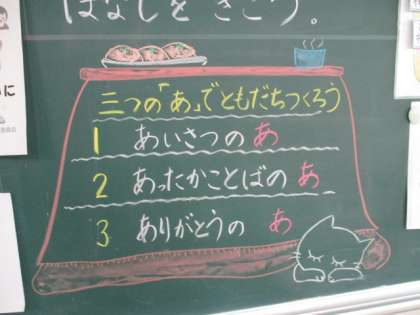 はなしをきこう。
三つの「あ」でともだちつくろう
1 あいさつの あ
2 あったかことばの あ
3 ありがとうの あ